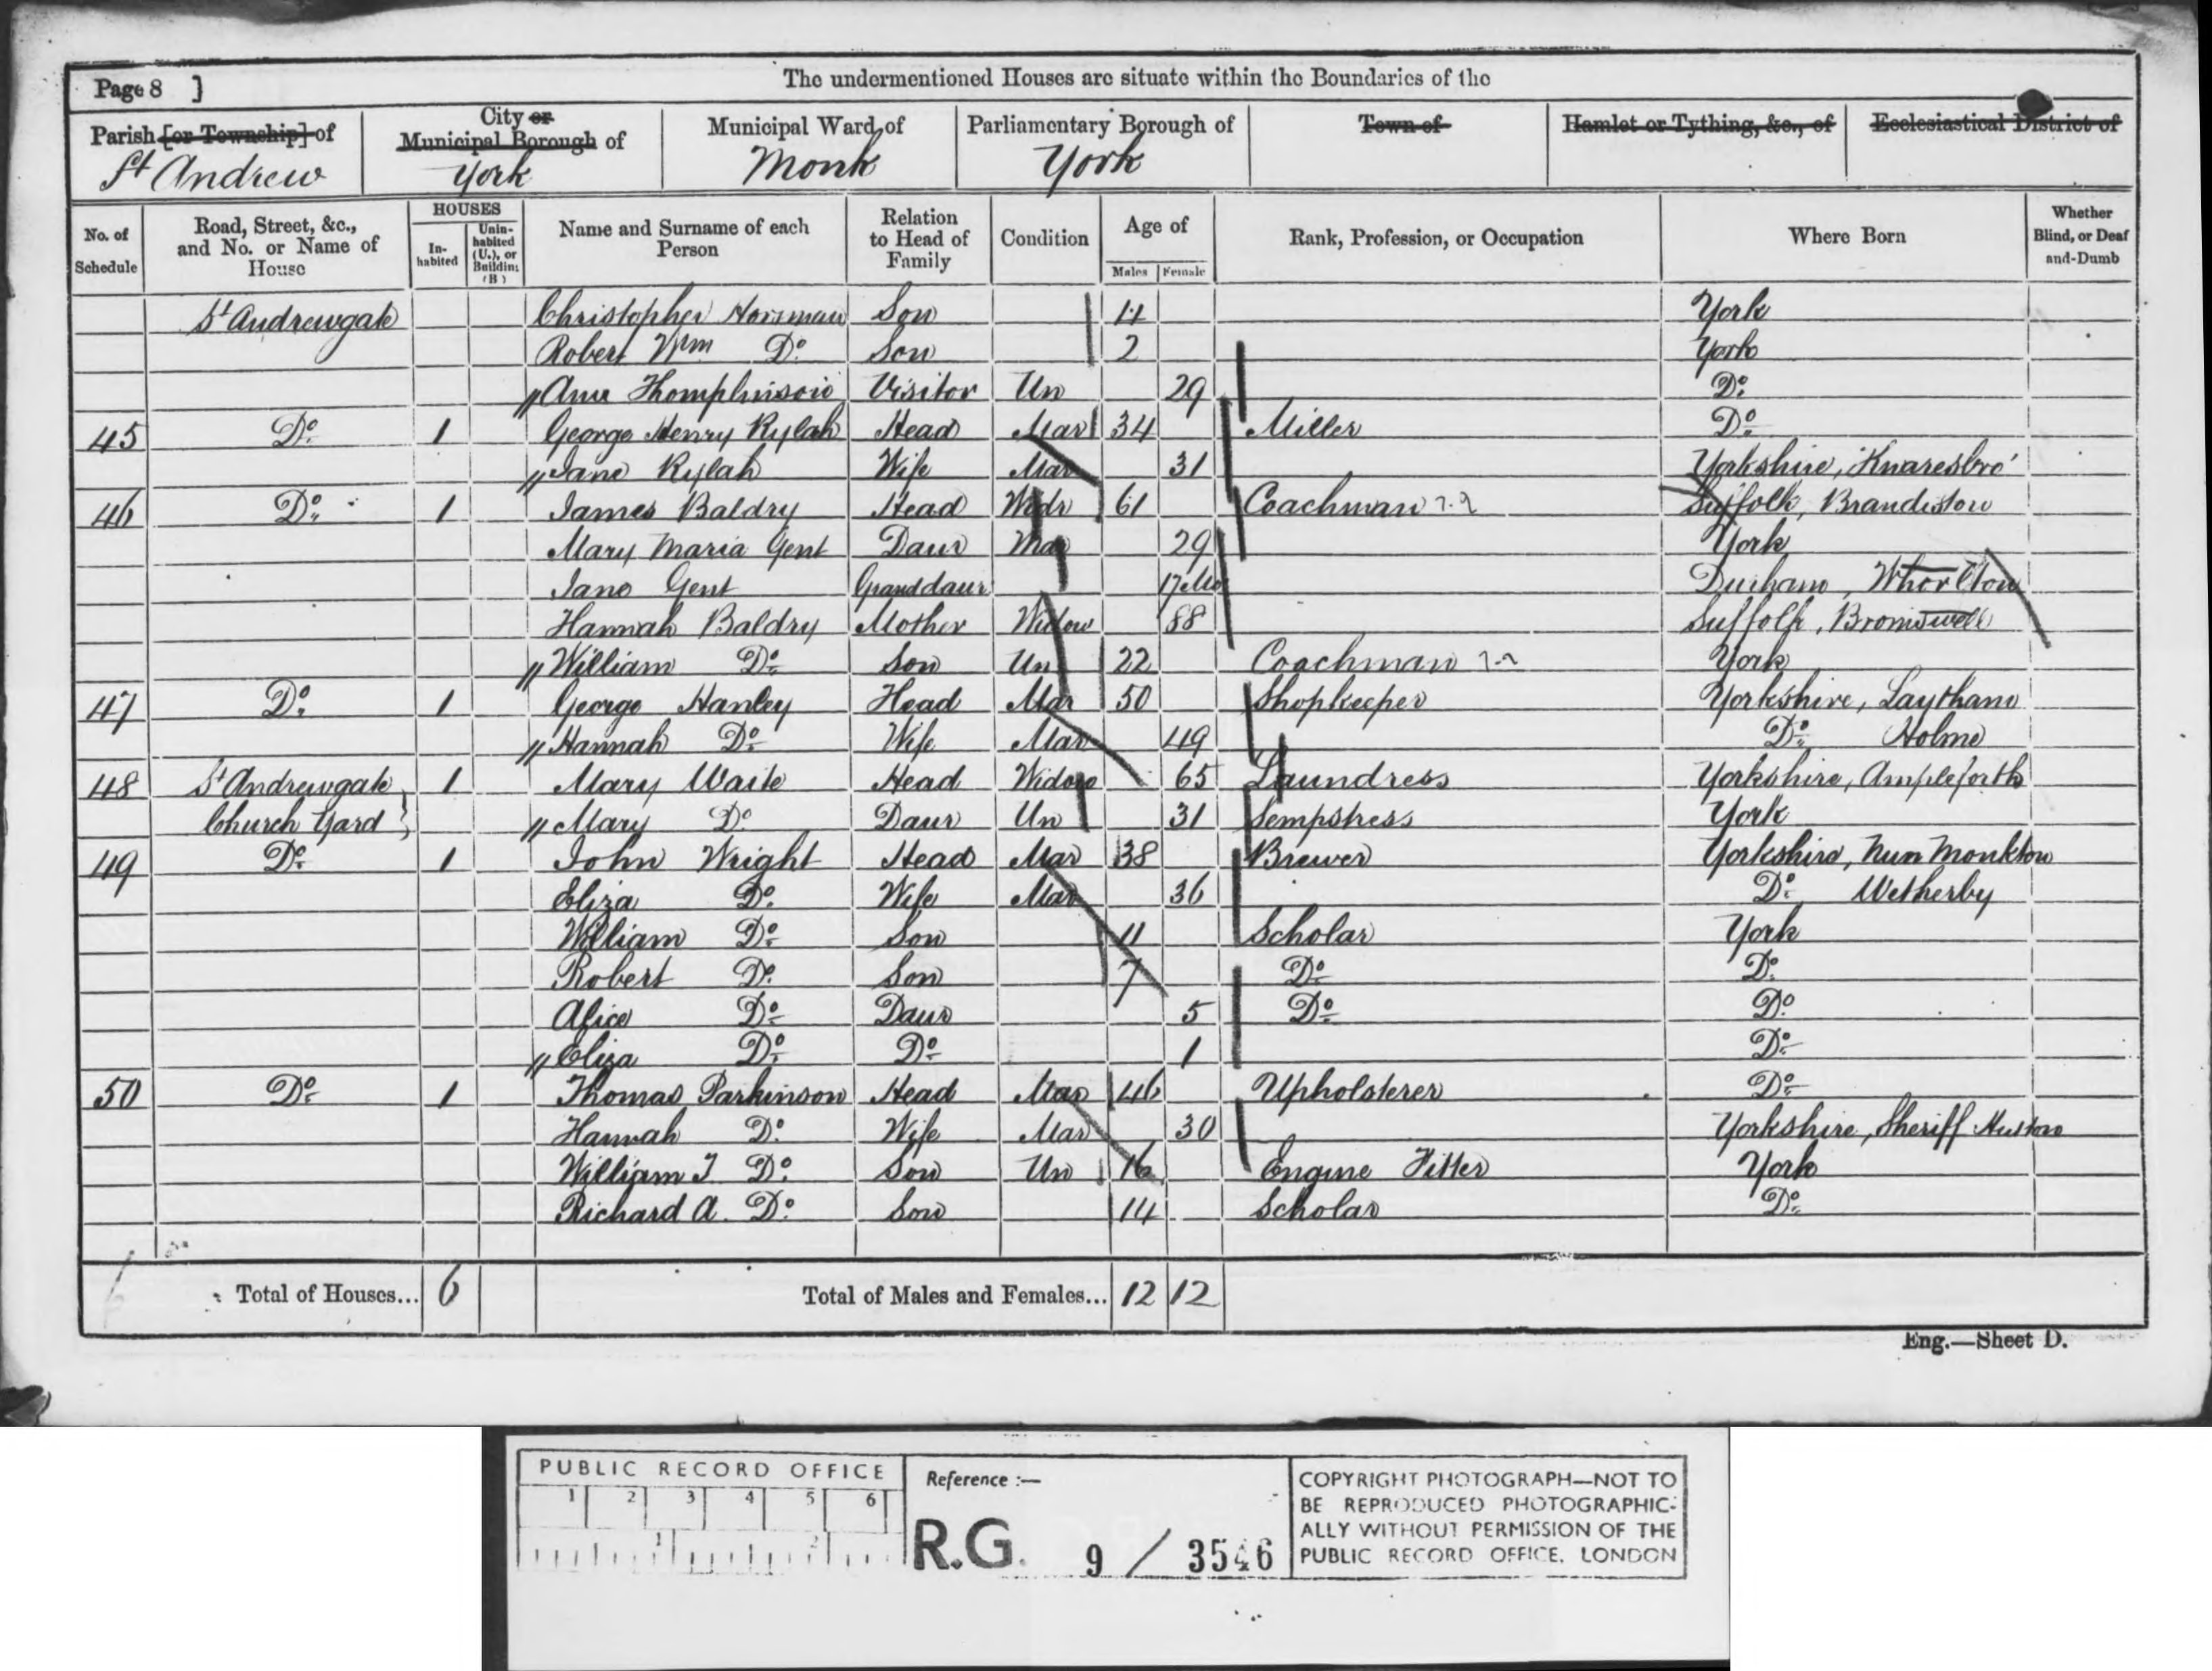 The undermentioned Houses are situate within the Boundaries of the
Page 8 ]
Parish [or Township] of
St Andrew
City or
Municipal Borough of
York
Municipal Ward of
Monk
Parliamentary Borough of
York
Town of
Hamlet or Tything, &c., of
Ecclesiastical District of
No. of
Schedule
Road, Street, &c.,
and No. or Name of
House
HOUSES
In-
habited
Unin-
habited
(U.), or
Building
(B)
Name and Surname of each
Person
Relation
to Head of
Family
Condition
Age of
Males Female
Rank, Profession, or Occupation
Where Born
Whether
Blind, or Deaf
and-Dumb
St Andrewgate Christopher Horsman Son 4 York
Robert Wm Do Son 2 York
Ann Visitor Un 29 Do
45 Do 1 George Henry Rylah Head Mar 34 Miller Do
Jane Rylah Wife Mar 31 Yorkshire, Knaresbro'
46 Do 1 James Baldry Head Widr 61 Coachman Suffolk, Brandiston
Mary Maria Gent Daur Mar 29 York
Jane Gent Granddaur 17 Mo Durham, Whorlton
Hannah Baldry Mother Widow 88 Suffolk, Bromswell
William Do Son Un 22 Coachman York
47 Do 1 George Hanley Head Mar 50 Shopkeeper Yorkshire, Laytham
Hannah Do Wife Mar 49 Do Holme
48 St Andrewgate 1 Mary Waite Head Widow 65 Laundress Yorkshire, Ampleforth
Church Yard } Mary Do Daur Un 31 Sempstress York
49 Do 1 John Wright Head Mar 38 Brewer Yorkshire, Nun Monkton
Eliza Do Wife Mar 36 Do Wetherby
William Do Son 11 Scholar York
Robert Do Son 7 Do Do
Alice Do Daur 5 Do Do
Eliza Do Do 1 Do
50 Do 1 Thomas Parkinson Head Mar 46 Upholsterer Do
Hannah Do Wife Mar 30 Yorkshire, Sheriff Hutton
William T Do Son Un 16 Engine Fitter York
Richard A. Do Son 14 Scholar Do
Total of Houses... 6 Total of Males and Females... 12 12
Eng.—Sheet D.
PUBLIC RECORD OFFICE
1 2 3 4 5 6
1 2
Reference :—
R.G. 9 / 3546
COPYRIGHT PHOTOGRAPH—NOT TO
BE REPRODUCED PHOTOGRAPHIC-
ALLY WITHOUT PERMISSION OF THE
PUBLIC RECORD OFFICE. LONDON